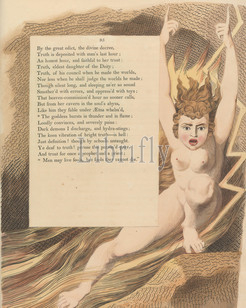 95
By the great edict, the divine decree,
Truth is deposited with man's last hour;
An honest hour, and faithful to her trust;
Truth, eldest daughter of the Deity;
Truth, of his council when he made the worlds,
Nor less when he shall judge the worlds he made;
Though silent long, and sleeping ne'er so sound
Smother'd with errors, and oppress'd with toys;
That heaven-commission'd hour no sooner calls,
But from her cavern in the soul's abyss,
Like him they fable under Ætna whelm'd,
* The goddess bursts in thunder and in flame;
Loudly convinces, and severely pains:
Dark demons I discharge, and hydra-stings;
The keen vibration of bright truth—is hell:
Just definition! though by schools untaught.
Ye deaf to truth! peruse this parson'd page,
And trust for once a prophet and a priest;
" Men may live fools, but fools they cannot die."